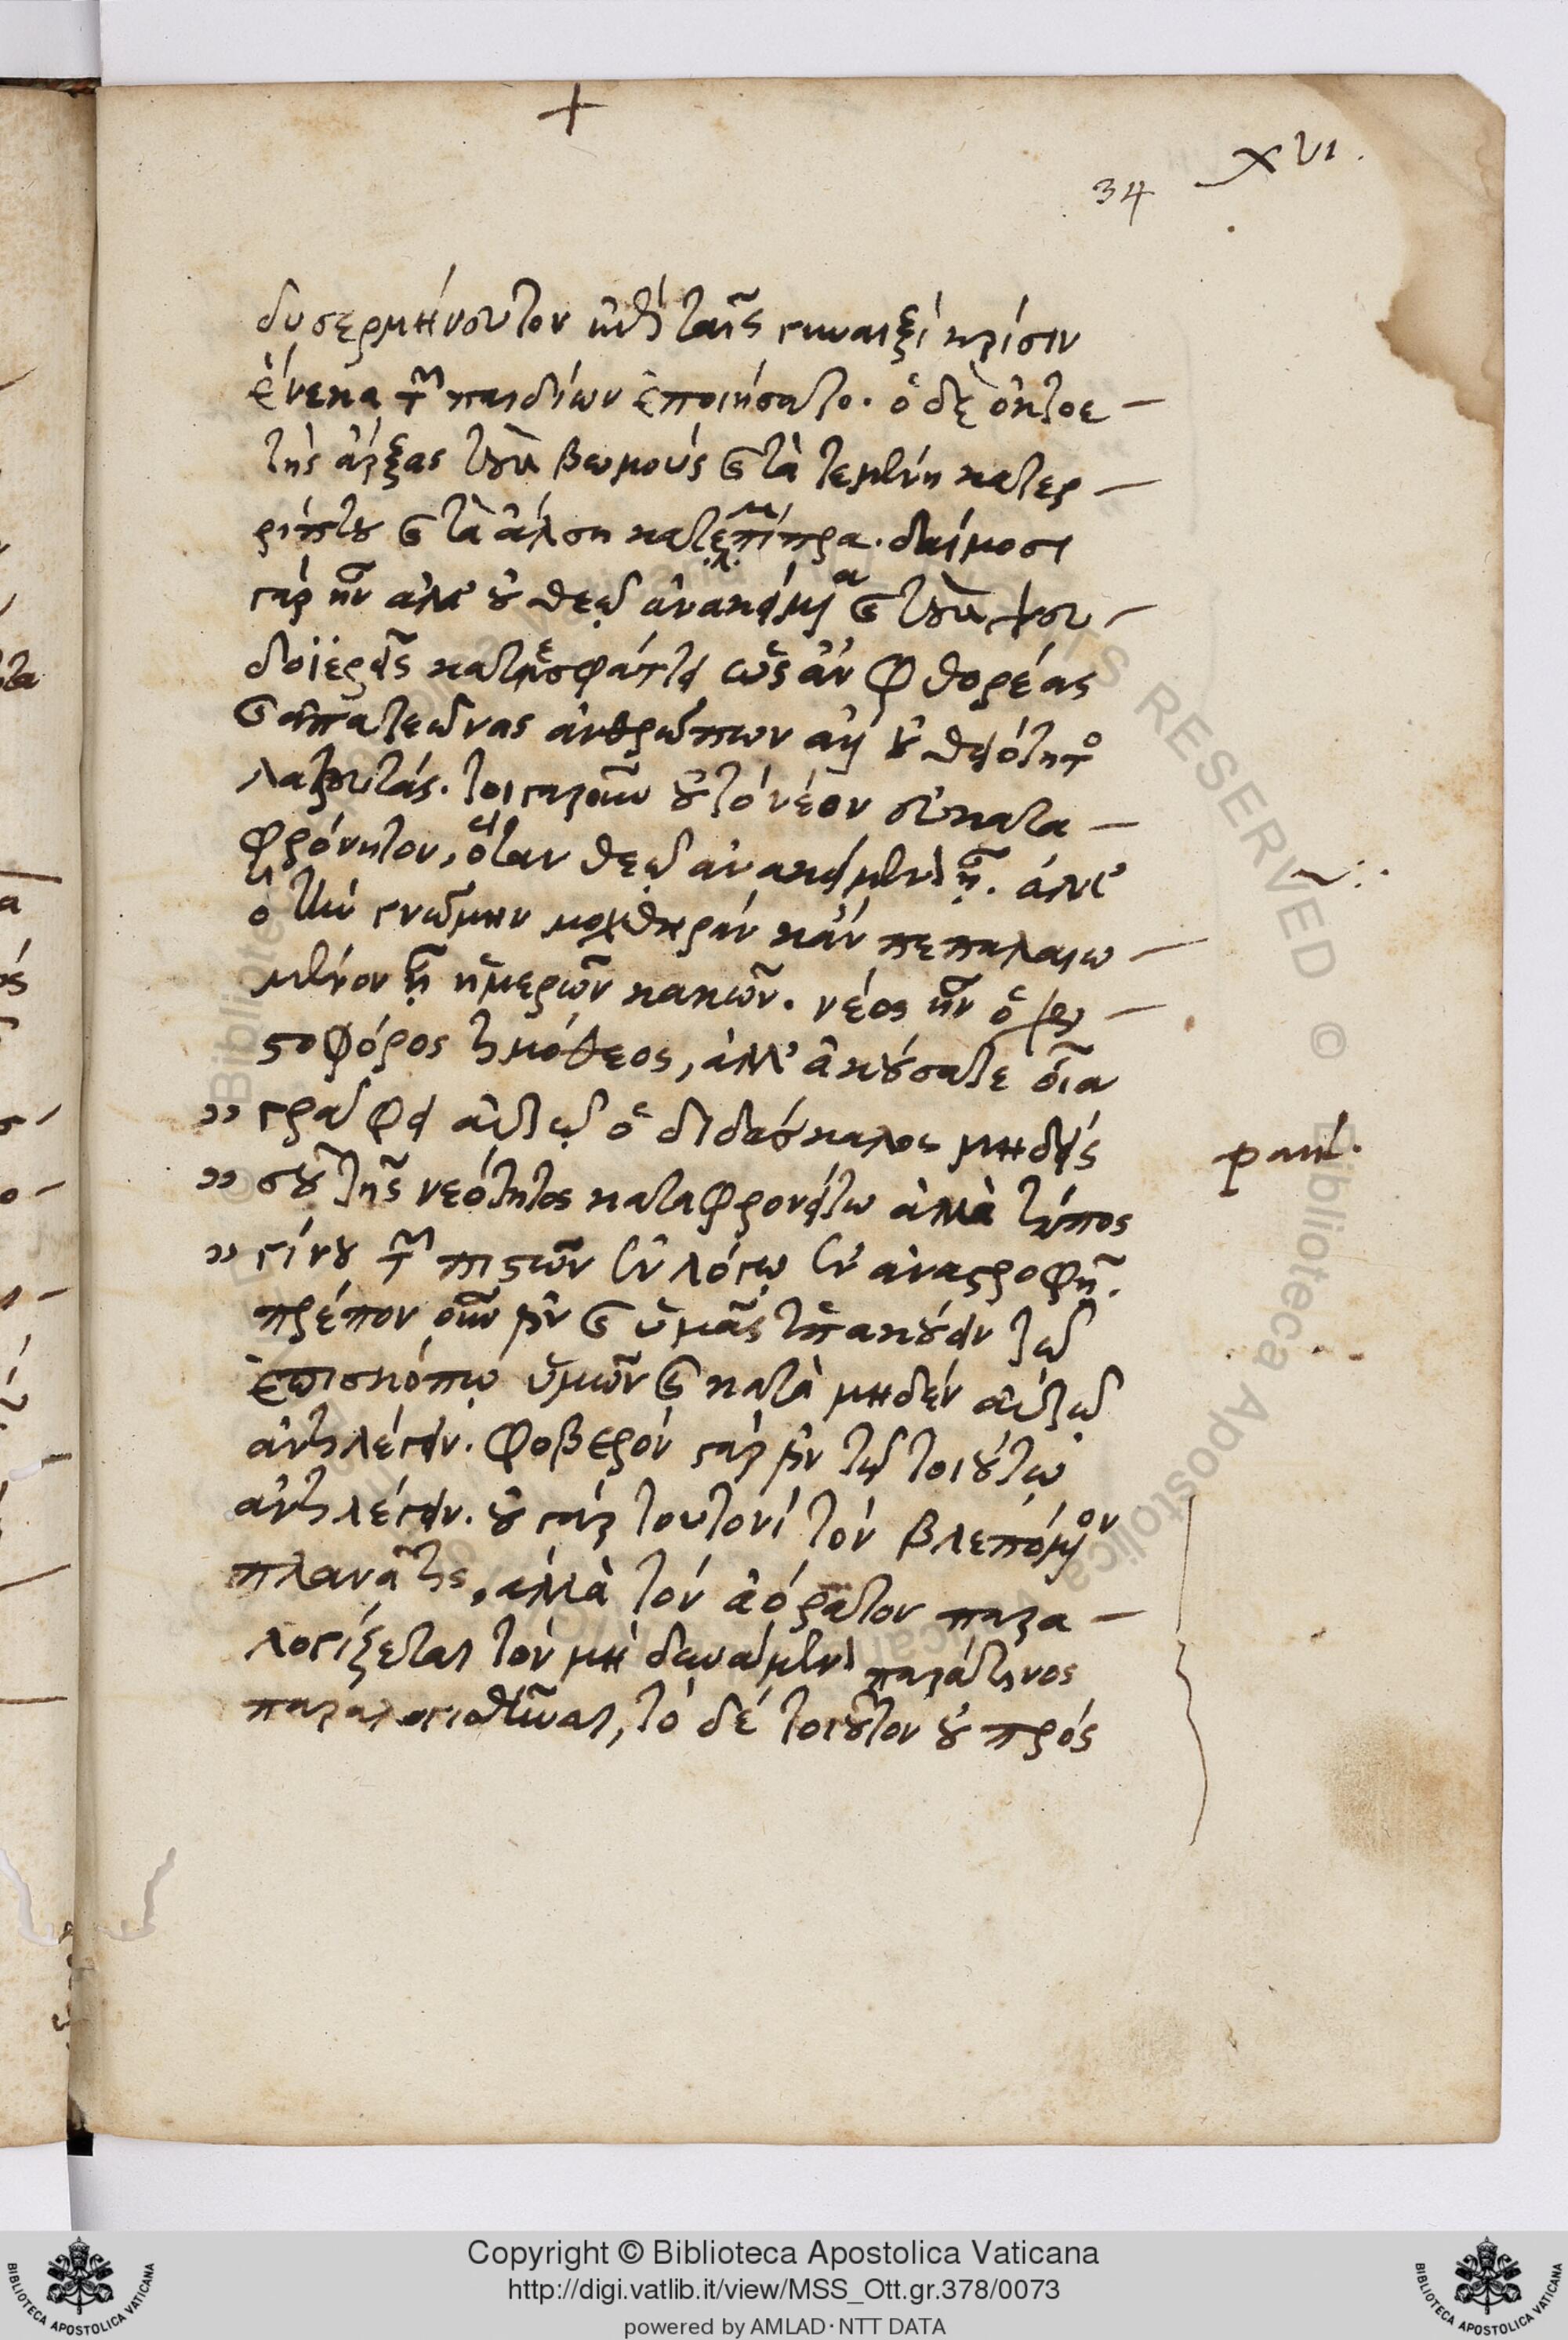 +
34 XVI.
δυσερμήνευτον κ̀ ταῖς γυναιξὶ κρίσιν
ἕνεκα τῶν παιδίων ἐποιήσατο. ὁ δὲ ὀκτοε-
τὴς ἄρξας τοὺς βωμοὺς καὶ τὰ τεμένη κατερ-
ρίπτου καὶ τὰ ἄλση κατεπίμπρα. δαίμοσι
γὰρ ἦν ἀλλ' οὐ θεῷ ἀνακείμενα καὶ τοὺς ψευ-
δοϊερεῖς κατέσφαττε ὡς ἂν φθορέας
καὶ ἀπατεῶνας ἀνθρώπων ἀλλ' οὐ θειότητος
λατρευτάς. τοιγαροῦν οὐ τὸ νέον εὐκατα-
φρόνητον, ὅταν θεῷ ἀνακείμενον ᾖ. ἀλλ'
ὁ τὴν γνώμην μοχθηρὰν κἂν πεπαλαιω-
μένον ᾖ ἡμερῶν κακῶν. νέος ἦν ὁ χρι-
στοφόρος τιμόθεος, ἀλλ' ἀκούσατε οἷα
" γράφει αὐτῷ ὁ διδάσκαλος μηδείς
" σοῦ τῆς νεότητος καταφρονείτω ἀλλὰ τύπος
" γίνου τῶν πιστῶν ἐν λόγῳ ἐν ἀναστροφῇ.
paul.
πρέπον οὖν ἐστὶν καὶ ὑμᾶς ὑπακούειν τῷ
ἐπισκόπῳ ὑμῶν καὶ κατὰ μηδὲν αὐτῷ
ἀντιλέγειν. φοβερὸν γάρ ἐστὶν τῷ τοιούτῳ
ἀντιλέγειν. οὐ γὰρ τουτονὶ τὸν βλεπόμενον
πλανᾷ τις, ἀλλὰ τὸν ἀόρατον παρα-
λογίζεται τὸν μὴ δυνάμενον παρά τινος
παραλογισθῆναι, τὸ δὲ τοιοῦτον οὐ πρός
Copyright © Biblioteca Apostolica Vaticana
http://digi.vatlib.it/view/MSS_Ott.gr.378/0073
powered by AMLAD·NTT DATA
BIBLIOTECA APOSTOLICA VATICANA
BIBLIOTECA APOSTOLICA VATICANA